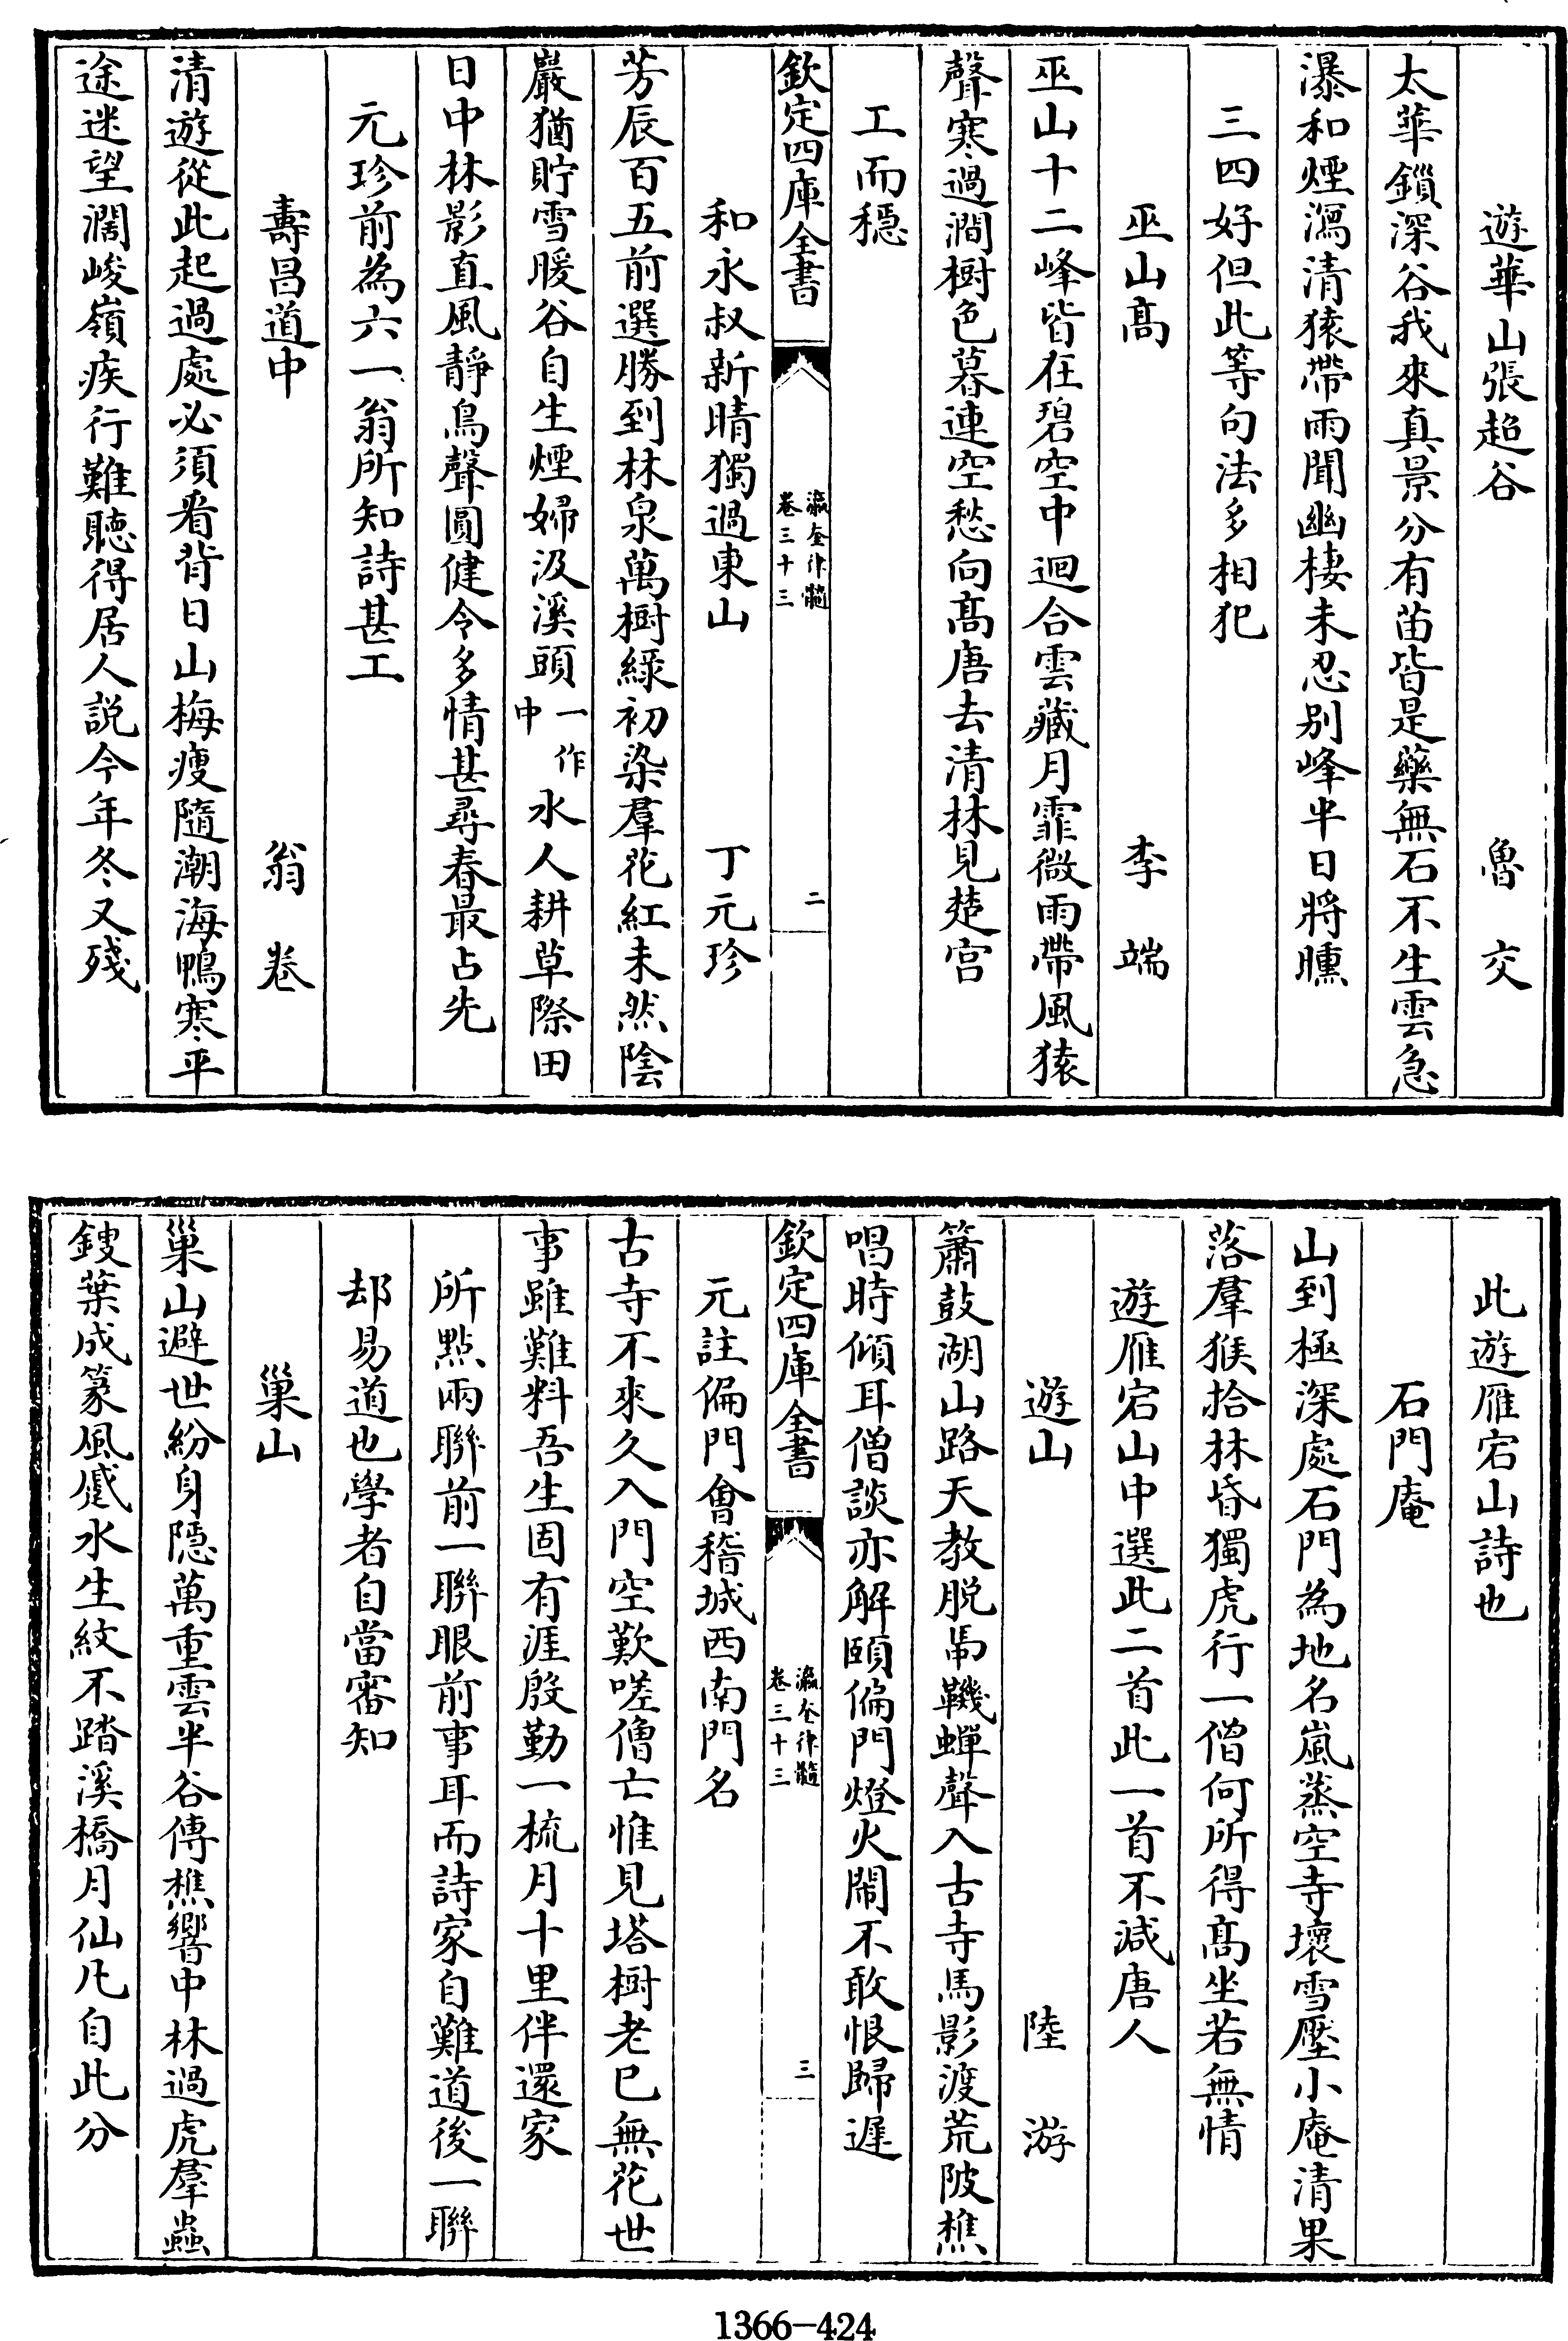 遊華山張超谷　魯　交
太華鎖深谷我來真景分有苗皆是藥無石不生雲急
瀑和煙瀉清猿帶雨聞幽棲未忍别峰半日將曛
三四好但此等句法多相犯
巫山髙　李　端
巫山十二峰皆在碧空中迴合雲藏月霏微雨帶風猿
聲寒過澗樹色暮連空愁向髙唐去清林見楚宫
工而穩
欽定四庫全書　瀛奎律髓　卷三十三　二
和永叔新晴獨過東山　丁元珍
芳辰百五前選勝到林泉萬樹綠初染羣花紅未然陰
巖猶貯雪暖谷自生煙婦汲溪頭一作中水人耕草際田
日中林影直風靜鳥聲圓健令多情甚尋春最占先
元珍前為六一翁所知詩甚工
壽昌道中　翁　卷
清遊從此起過處必須看背日山梅瘦隨潮海鴨寒平
途迷望濶峻嶺疾行難聽得居人説今年冬又殘
此遊雁宕山詩也
石門庵
山到極深處石門為地名嵐蒸空寺壞雪壓小庵清果
落羣猴拾林昏獨虎行一僧何所得髙坐若無情
遊雁宕山中選此二首此一首不減唐人
遊山　陸　游
簫鼓湖山路天教脱馽鞿蟬聲入古寺馬影渡荒陂樵
唱時傾耳僧談亦解頤偏門燈火鬧不敢恨歸遲
欽定四庫全書　瀛奎律髓　卷三十三　三
元註偏門會稽城西南門名
古寺不來久入門空歎嗟僧亡惟見塔樹老已無花世
事雖難料吾生固有涯殷勤一梳月十里伴還家
所㸃兩聯前一聯眼前事耳而詩家自難道後一聯
却易道也學者自當審知
巢山
巢山避世紛身隱萬重雲半谷傳樵響中林過虎羣蟲
鎪葉成篆風蹙水生紋不踏溪橋月仙凡自此分
1366-424